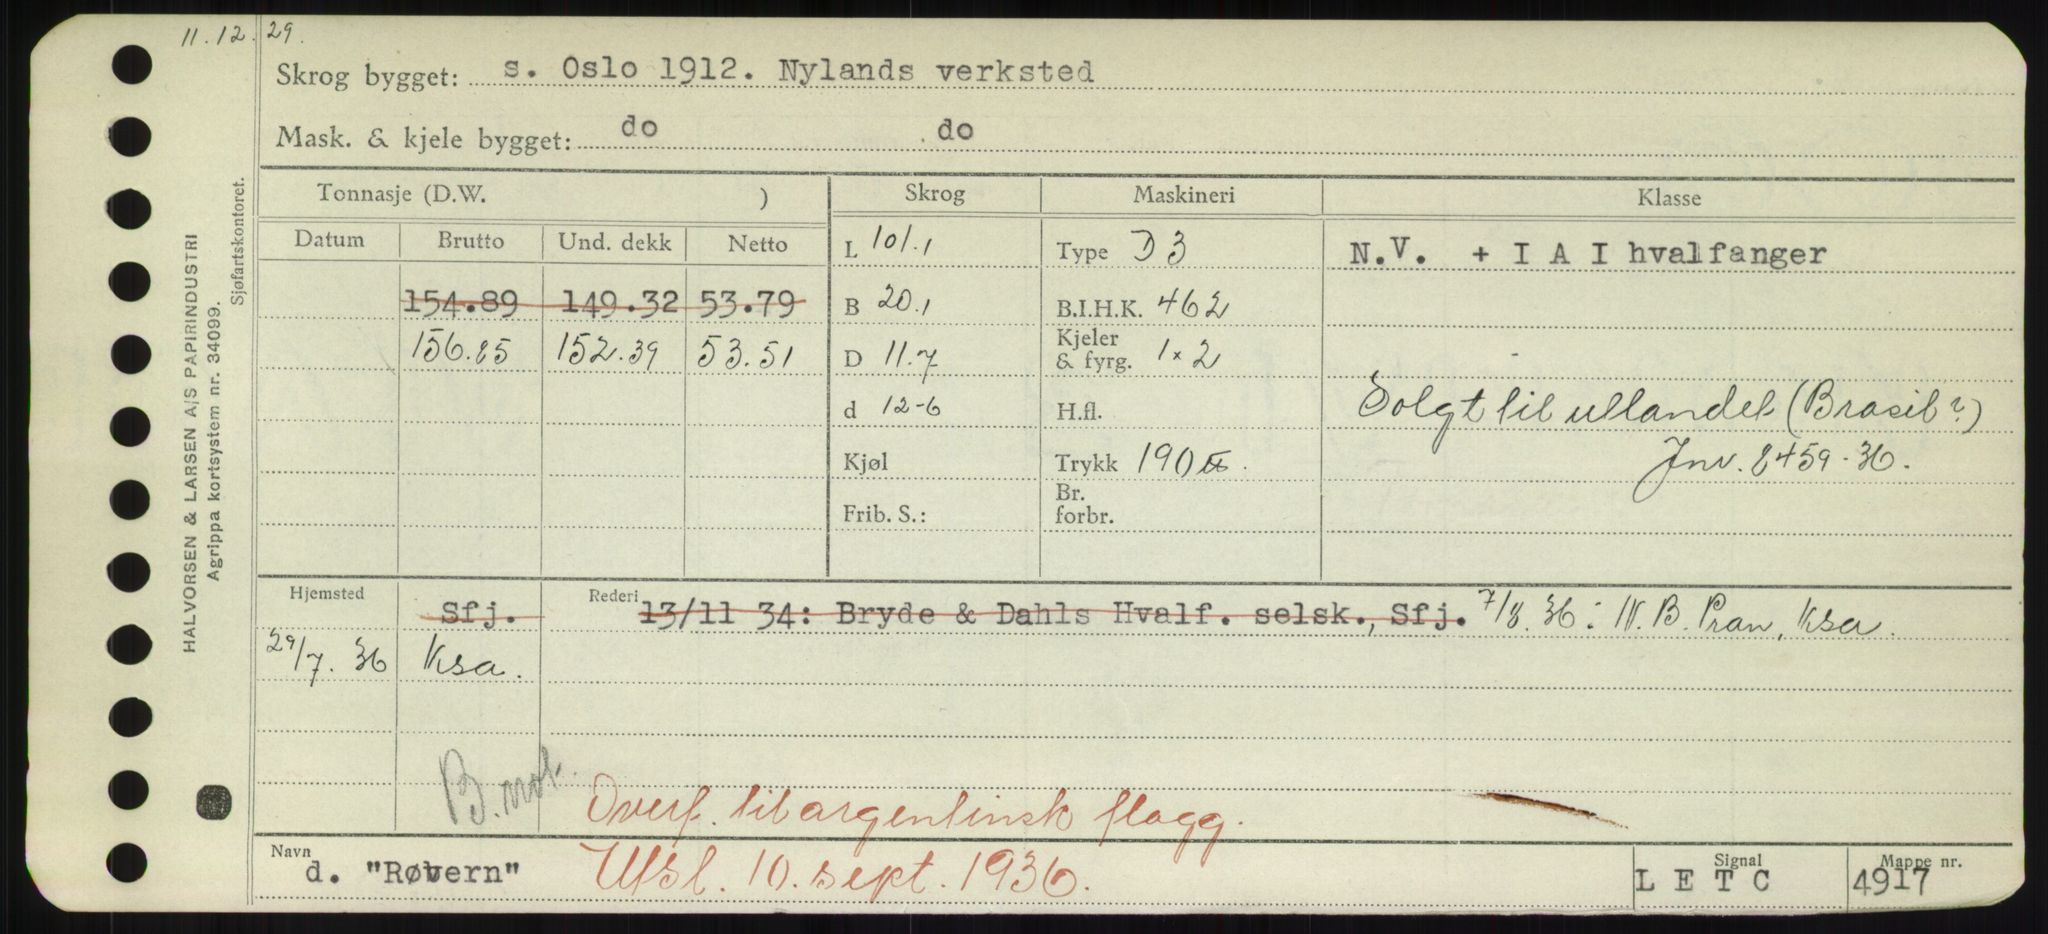 11.12.29.
Skrog bygget: s. Oslo 1912. Nylands verksted
Mask. & kjele bygget: do do
Tonnasje (D.W. ) Skrog Maskineri Klasse
Datum Brutto Und. dekk Netto L 101.1 Type D 3 N.V. + I A I hvalfanger
154.89 149.32 53.79 B 20.1 B.I.H.K. 462
156.85 152.39 53.51 D 11.7 Kjeler & fyrg. 1x2
d 12-6 H.fl. Solgt til utlandet (Brasil?)
Kjøl Trykk 190 Jnv. 2459-36.
Frib. S.: Br. forbr.
Hjemsted Sfj. Rederi 13/11 34: Bryde & Dahls Hvalf. selsk., Sfj. 7/8.36: N. B. Pran, Ksa.
29/7. 36 Ksa.
B. mot.
Overf. til argentinsk flagg.
Navn d. "Røvern" Utsl. 10. sept. 1936. Signal L E T C Mappe nr. 4917
HALVORSEN & LARSEN A/S PAPIRINDUSTRI
Agrippa kortsystem nr. 34099.
Sjøfartskontoret.